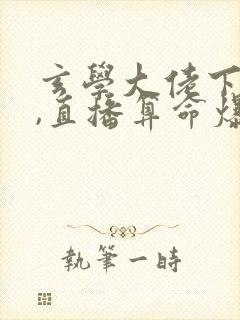 玄學大佬下
,直播算命爆
執筆一時